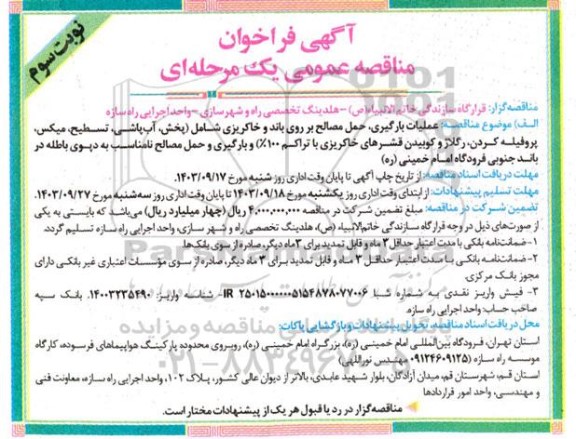 نوبت سوم
آگهی فراخوان
مناقصه عمومی یک مرحله‌ای
مناقصه‌گزار: قرارگاه سازندگی خاتم‌الانبیاء(ص) –هلدینگ تخصصی راه و شهرسازی –واحد اجرایی راه سازه
الف) موضوع مناقصه: عملیات بارگیری، حمل مصالح بر روی باند و خاکریزی شامل (پخش، آب‌پاشی، تسطیح، میکس،
پروفیله کردن، رگلاژ و کوبیدن قشرهای خاکریزی با تراکم ۱۰۰٪) و بارگیری و حمل مصالح نامناسب به دپوی باطله در
باند جنوبی فرودگاه امام خمینی (ره)
مهلت دریافت اسناد مناقصه: از تاریخ چاپ آگهی تا پایان وقت اداری روز شنبه مورخ ۱۴۰۳/۰۹/۱۷.
مهلت تسلیم پیشنهادات: از ابتدای وقت اداری روز یکشنبه مورخ ۱۴۰۳/۰۹/۱۸ تا پایان وقت اداری روز سه‌شنبه مورخ ۱۴۰۳/۰۹/۲۷.
تضمین شرکت در مناقصه: مبلغ تضمین شرکت در مناقصه ۴،۰۰۰،۰۰۰،۰۰۰ ریال (چهار میلیارد ریال) می‌باشد که بایستی به یکی
از صورت‌های ذیل در وجه قرارگاه سازندگی خاتم‌الانبیاء (ص)، هلدینگ تخصصی راه و شهرسازی، واحد اجرایی راه سازه تسلیم گردد.
۱-ضمانت‌نامه بانکی با مدت اعتبار حداقل ۳ ماه و قابل تمدید برای ۳ ماه دیگر، صادره از سوی بانک‌ها.
۲-ضمانت‌نامه بانکی با مدت اعتبار حداقل ۳ ماه و قابل تمدید برای ۳ ماه دیگر، صادره از سوی مؤسسات اعتباری غیر بانکی دارای
مجوز بانک مرکزی.
۳- فیش واریز نقدی به شماره شبا IR ۲۵۰۱۵۰۰۰۰۰۰۵۱۵۴۸۷۸۰۷۷۰۰۶- شناسه واریز: ۱۴۰۰۳۲۳۵۴۹۰ بانک سپه
صاحب حساب: واحد اجرایی راه سازه
محل دریافت اسناد مناقصه، تحویل پیشنهادات و بازگشایی پاکات:
استان تهران، فرودگاه بین‌المللی امام خمینی (ره)، بزرگراه امام خمینی (ره)، روبروی محدوده پارکینگ هواپیماهای فرسوده، کارگاه
موسسه راه سازه (۰۹۱۲۴۶۰۹۱۲۵ مهندس نوراللهی)
استان قم، شهرستان قم، میدان آزادگان، بلوار شهید عابدی، بالاتر از دیوان عالی کشور، پلاک ۱۰۲، واحد اجرایی راه سازه، معاونت فنی
و مهندسی، واحد امور قراردادها
مناقصه‌گزار در رد یا قبول هر یک از پیشنهادات مختار است.